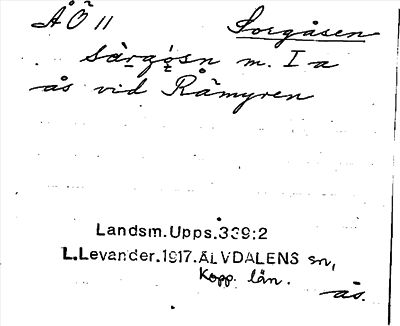 ÅÖ 11 Sorgåsen
särgåsn m. I a
ås vid Råmyren
Landsm.Upps.339:2
L.Levander.1917.ÄLVDALENS sn,
Kopp. län.
ås.